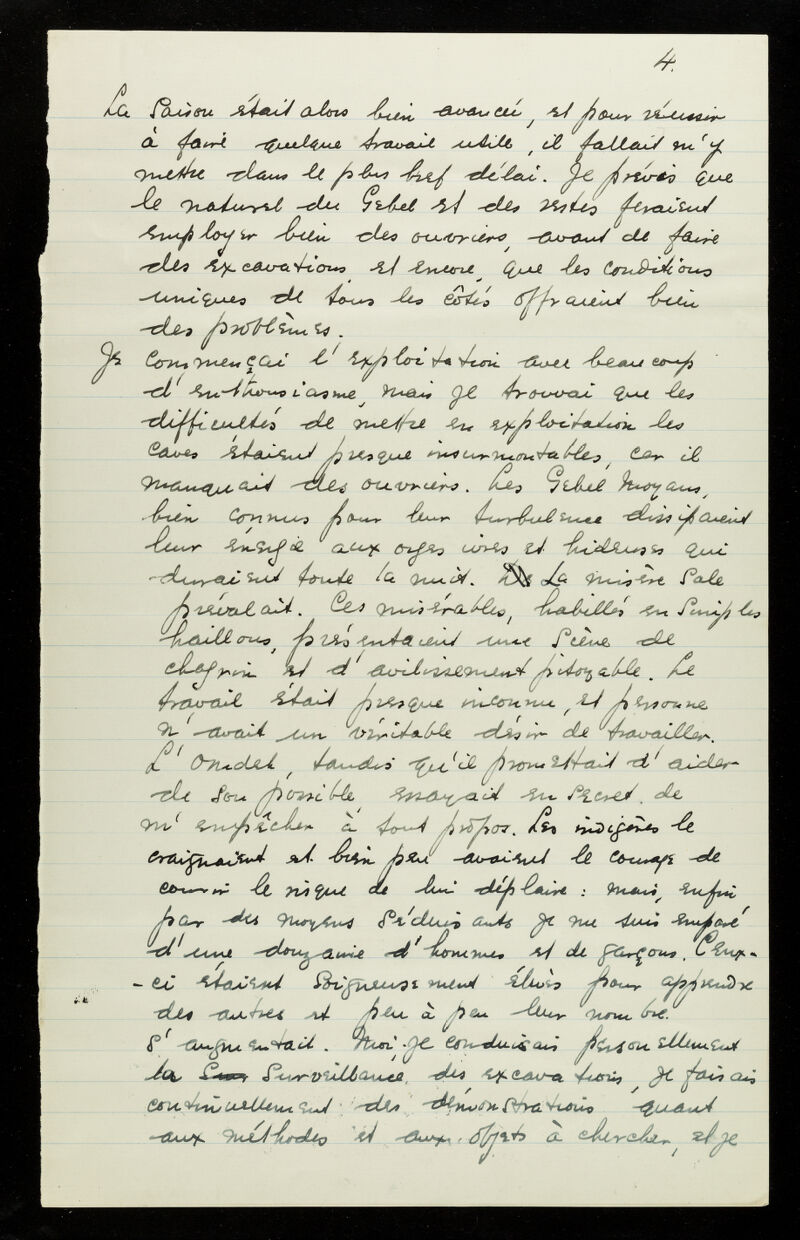 4.
La saison était alors bien avancée, et pour réussir
à faire quelque travail utile, il fallait m'y
mettre dans le plus bref délai. Je prévis que
le naturel du Gebel et des restes feraient
employer bien des ouvriers, avant de faire
des excavations, et encore, que les conditions
uniques de tous les côtés offraient bien
des problèmes.
Je commençai l'exploitation avec beaucoup
d'enthousiasme, mais je trouvai que les
difficultés de mettre en exploitation les
caves étaient presque insurmontables, car il
manquait des ouvriers. Les Gebel Moyans,
bien connus pour leur turbulence dissipaient
leur énergie aux orges ivres et hideuses qui
duraient toute la nuit. La misère sale
prévalait. Ces misérables, habillés en simples
haillons, présentaient une scène de
chagrin et d'avilissement pitoyable. Le
travail était presque inconnu, et personne
n'avait un véritable désir de travailler.
L'Omdeh, tandis qu'il promettait d'aider
de son possible, essayait en secret de
m'empêcher à tout propos. Les indigènes le
craignaient et bien peu avaient le courage de
courir le risque de lui déplaire : mais, enfin
par des moyens séduisants je me suis emparé
d'une douzaine d'hommes et de garçons. Ceux-
-ci étaient soigneusement élevés pour apprendre
des autres et peu à peu leur nombre
s'augmentait. Moi-je conduisais personellement
la Sur surveillance des excavations, je faisais
continuellement des démonstrations quant
aux méthodes et aux objets à chercher, et je